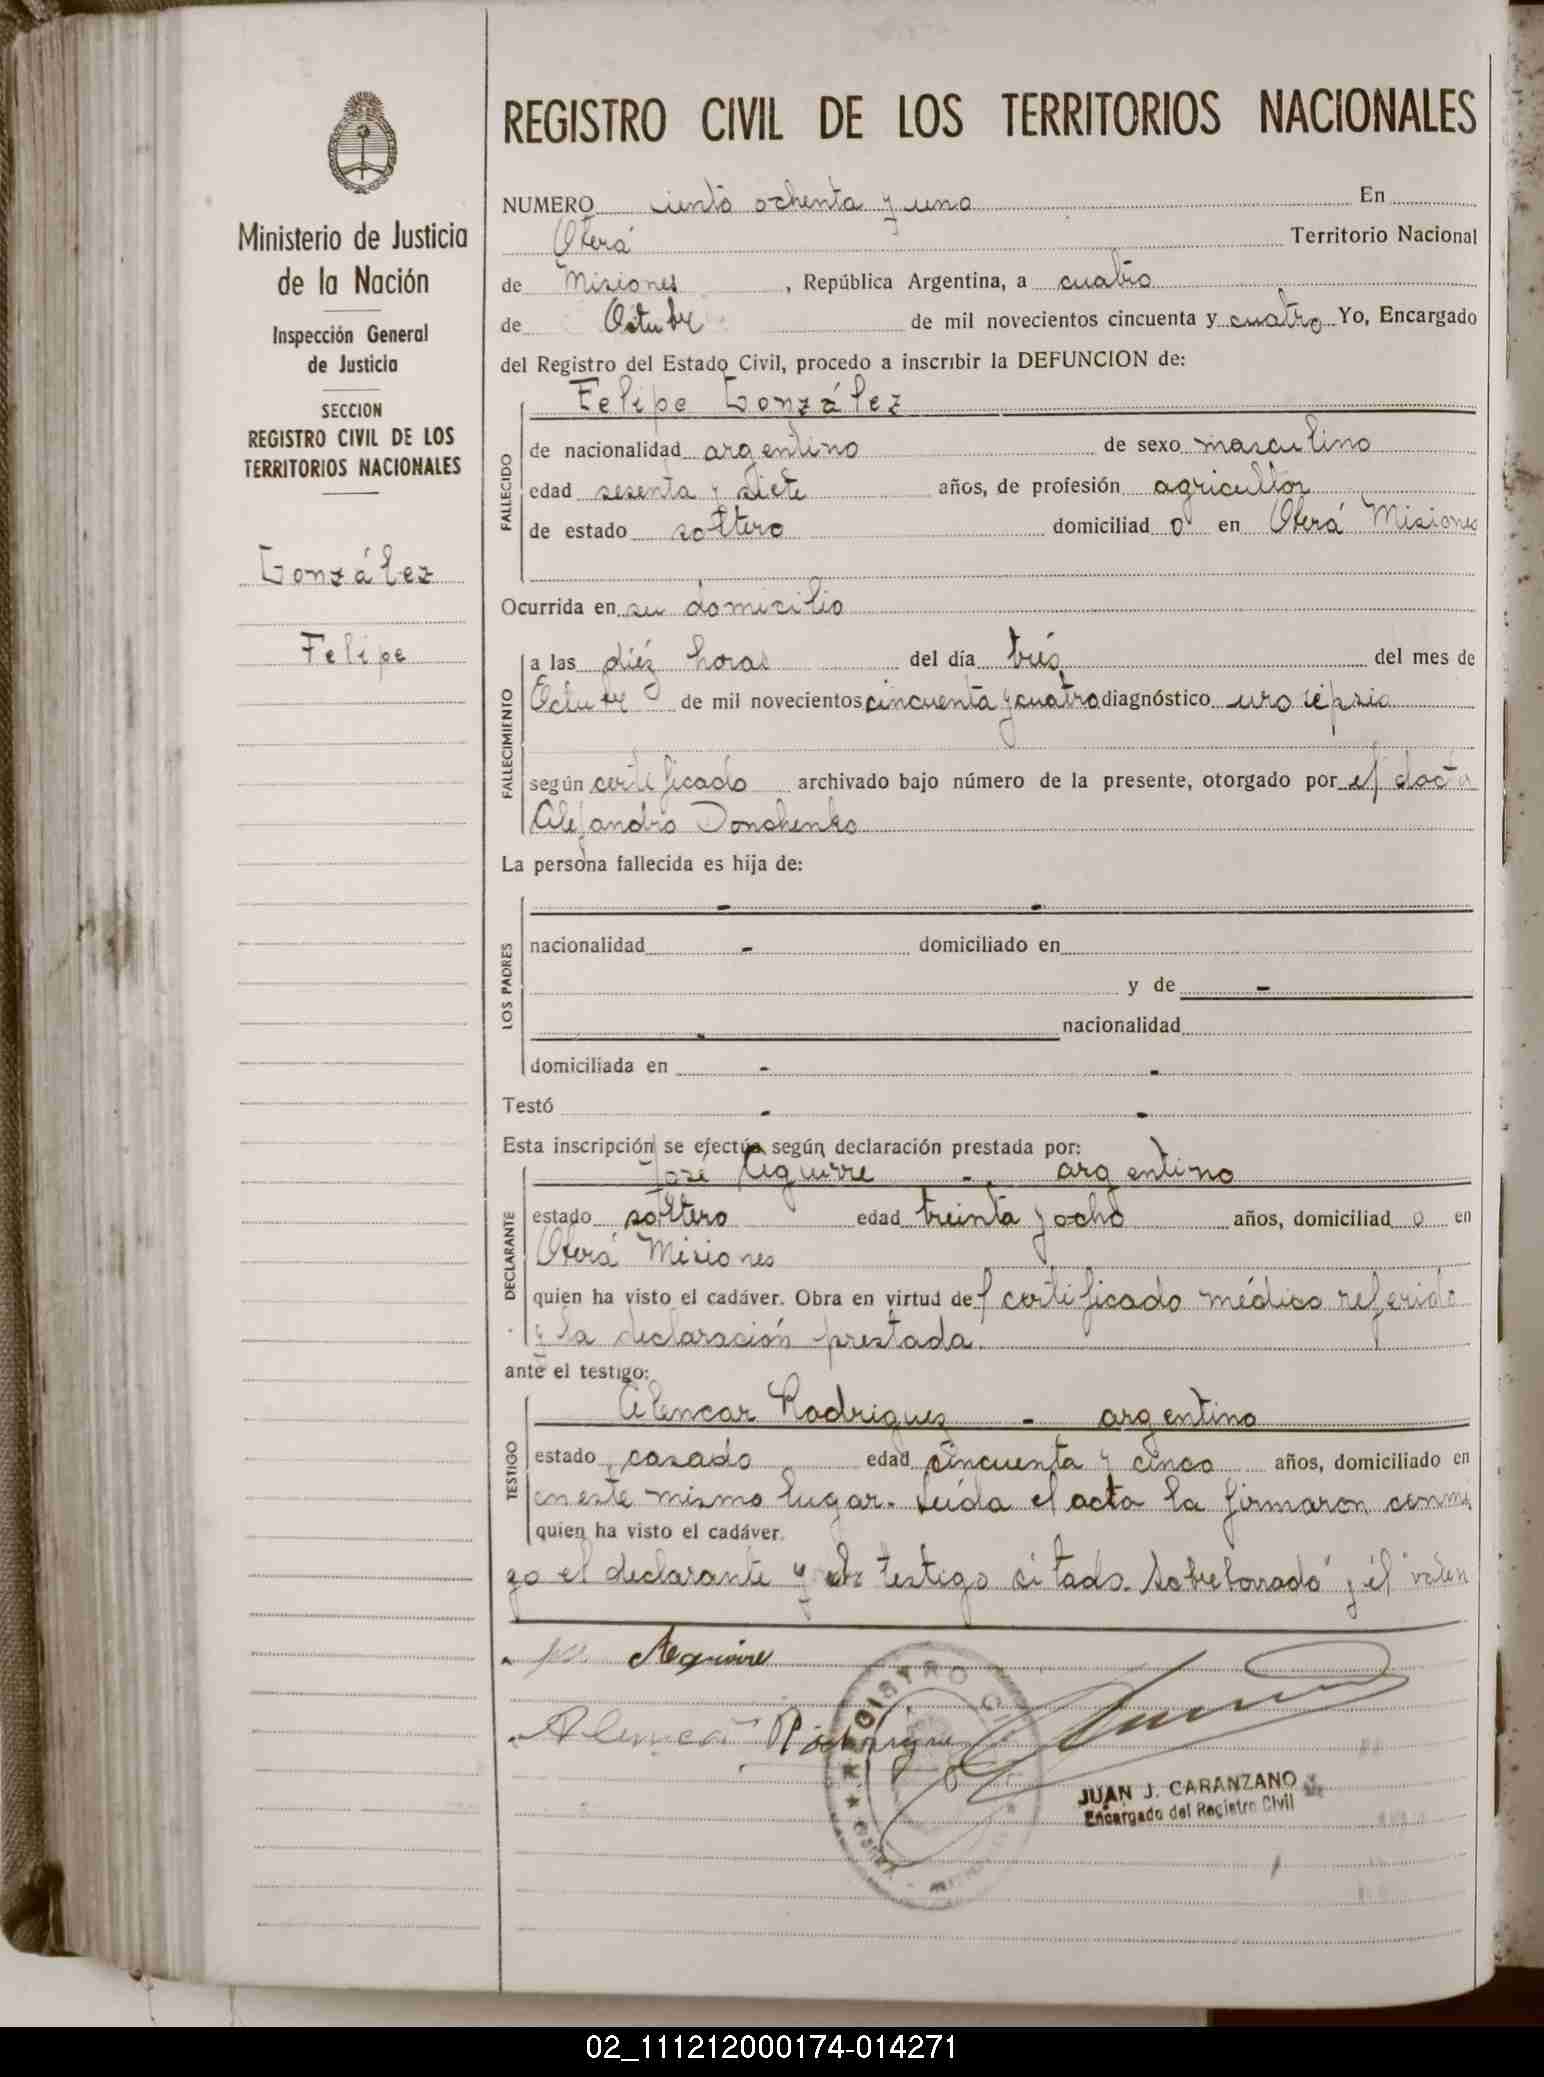 REGISTRO CIVIL DE LOS TERRITORIOS NACIONALES
Ministerio de Justicia
de la Nación
Inspección General
de Justicia
SECCION
REGISTRO CIVIL DE LOS
TERRITORIOS NACIONALES
González
Felipe
NUMERO ciento ochenta y uno En
Oberá Territorio Nacional
de Misiones, República Argentina, a cuatro
de Octubre de mil novecientos cincuenta y cuatro Yo, Encargado
del Registro del Estado Civil, procedo a inscribir la DEFUNCION de:
Felipe González
FALLECIDO
de nacionalidad argentino de sexo masculino
edad sesenta y siete años, de profesión agricultor
de estado soltero domiciliad o en Oberá Misiones
Ocurrida en su domicilio
FALLECIMIENTO
a las diéz horas del día trés del mes de
Octubre de mil novecientos cincuenta y cuatro diagnóstico uro sepsia
según certificado archivado bajo número de la presente, otorgado por el docto
Alejandro Donchenko
La persona fallecida es hija de:
LOS PADRES
- -
nacionalidad - domiciliado en
y de -
- nacionalidad
domiciliada en - -
Testó - -
Esta inscripción se efectúa según declaración prestada por:
DECLARANTE
José Aguirre - argentino
estado soltero edad treinta y ocho años, domiciliad o en
Oberá Misiones
quien ha visto el cadáver. Obra en virtud del certificado médico referido
y la declaración prestada.
ante el testigo:
TESTIGO
Alencar Rodriguez - argentino
estado casado edad cincuenta y cinco años, domiciliado en
en este mismo lugar. Leída el acta la firmaron conmi
quien ha visto el cadáver.
go el declarante y el testigo citado. Sobreborrado y él valen
Aguirre
Alencar Rodrigue
REGISTRO C
JUAN J. CARANZANO
Encargado del Registro Civil
02_111212000174-014271